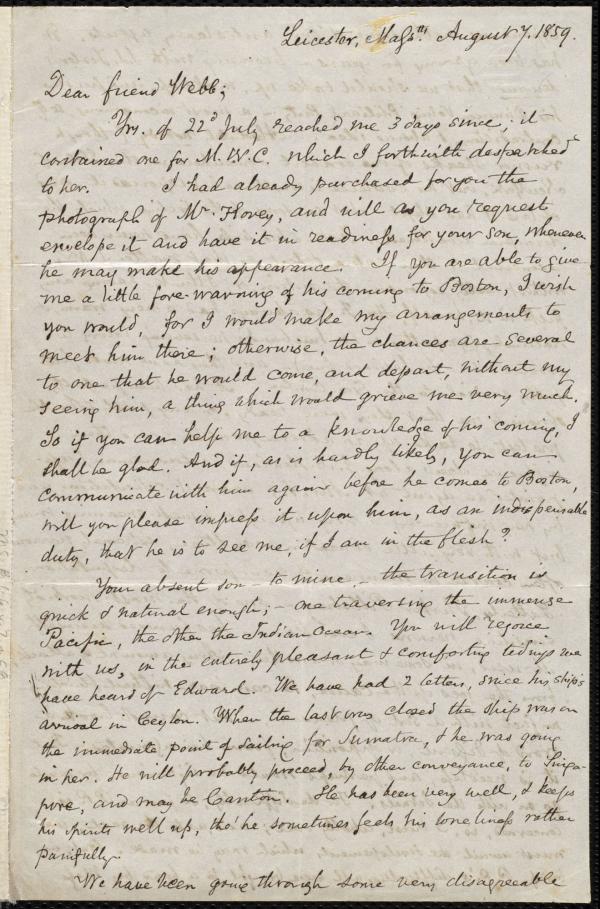 Leicester, Mass^ts. August 7. 1859.
Dear friend Webb;
Yrs. of 22^d July reached me 3 days since; it
contained one for M. W. C. which I forthwith despatched
to her. I had already purchased for you the
photograph of Mr Hovey, and will as you request
envelope it and have it in readiness for your son, whenever
he may make his appearance. If you are able to give
me a little fore-warning of his coming to Boston, I wish
you would, for I would make my arrangements to
meet him there; otherwise, the chances are several
to one that he would come, and depart, without my
seeing him, a thing which would grieve me very much.
So if you can help me to a knowledge of his coming, I
shall be glad. And if, as is hardly likely, you can
communicate with him again before he comes to Boston,
will you please impress it upon him, as an indispensable
duty, that he is to see me, if I am in the flesh?
Your absent son - to mine, - the transition is
quick & natural enough; - one traversing the immense
Pacific, the other the Indian Ocean. You will rejoice
with us, in the entirely pleasant & comforting tidings we
have heard of Edward. We have had 2 letters, since his ship's
arrival in Ceylon. When the last was closed the ship was on
the immediate point of sailing for Sumatra, & he was going
in her. He will probably proceed, by other conveyance, to Singa-
pore, and may be Canton. He has been very well, & keeps
his spirits well up, tho' he sometimes feels his loneliness rather
painfully.
We have been going through some very disagreeable